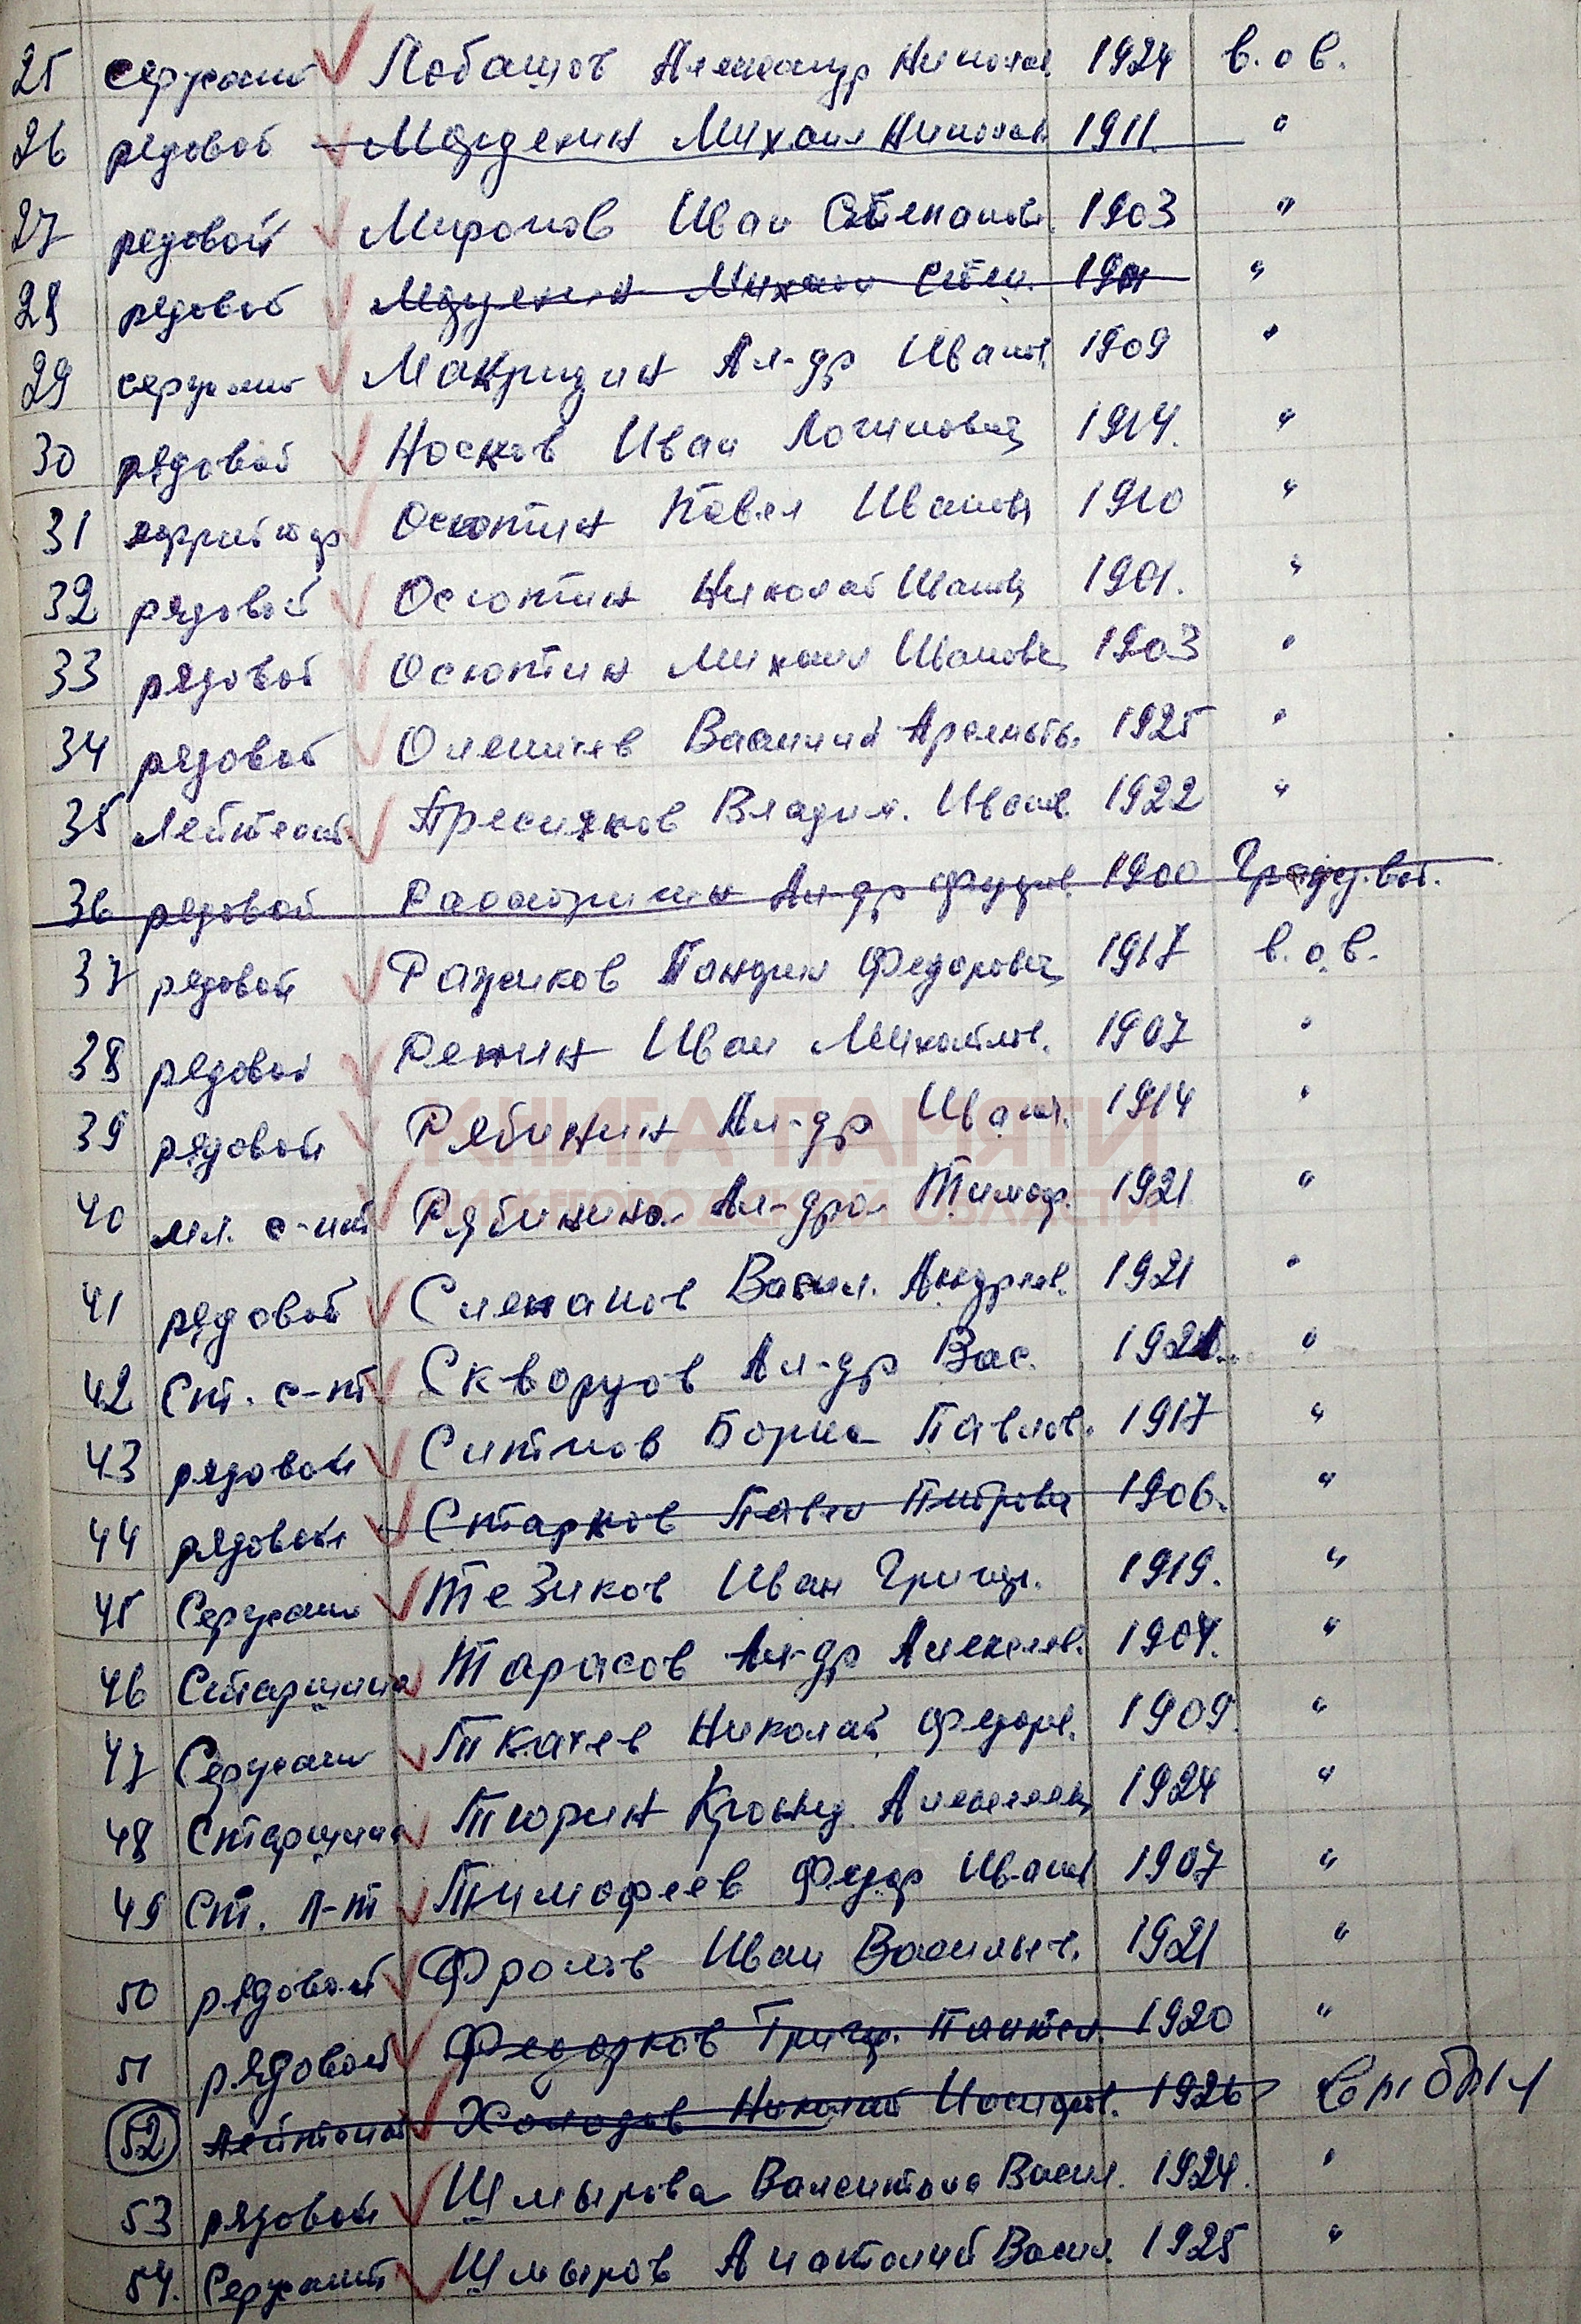 25 сержант Лобашов Александр Николаев. 1924 в.о в.
26 рядовой Михаил Николаев 1911. "
27 рядовой Миронов Иван Степанов. 1903 "
28 рядовой Михаил Степ. "
29 сержант Макридин Ал-др Иванов. 1909 "
30 рядовой Носков Иван Логинович 1914. "
31 Осютин Павел Иванов 1910 "
32 рядовой Осютин Николай Иванов 1901. "
33 рядовой Осютин Михаил Иванович 1903 "
34 рядовой Василий 1925 "
35 Лейтенант Пресняков Владим. Иванов. 1922 "
36 рядовой Ал-др 1900
37 рядовой Федорович 1917 в.о.в.
38 рядовой Репин Иван Михайлов. 1907 "
39 рядовой Рябинин Ал-др Иван. 1914 "
КНИГА ПАМЯТИ
40 мл. с-нт Рябинина Ал-дра Тимоф. 1921 "
НИЖЕГОРОДСКОЙ ОБЛАСТИ
41 рядовой Васил. Андреев. 1921 "
42 Ст. с-нт Скворцов Ал-др Вас. "
43 рядовой Ситнов Борис Павлов. 1917 "
44 рядовой Старков Павел Петрович 1906. "
45 Сержант Тезиков Иван Григор. 1919. "
46 Старшина Тарасов Ал-др Алексеев. 1904. "
47 Сержант Ткачев Николай Федоров. 1909. "
48 Старшина Тюрин Алексеевич 1924 "
49 Ст. л-т Тимофеев Федор Иванов 1907 "
50 рядовой Фролов Иван Васильев. 1921 "
51 рядовой Федорков Григ. Пантел. 1920 "
52 лейтенант Холодов Николай 1926
53 рядовой Шмырова Валентина Васил. 1924. "
54. Сержант Шмыров Анатолий Васил. 1925 "